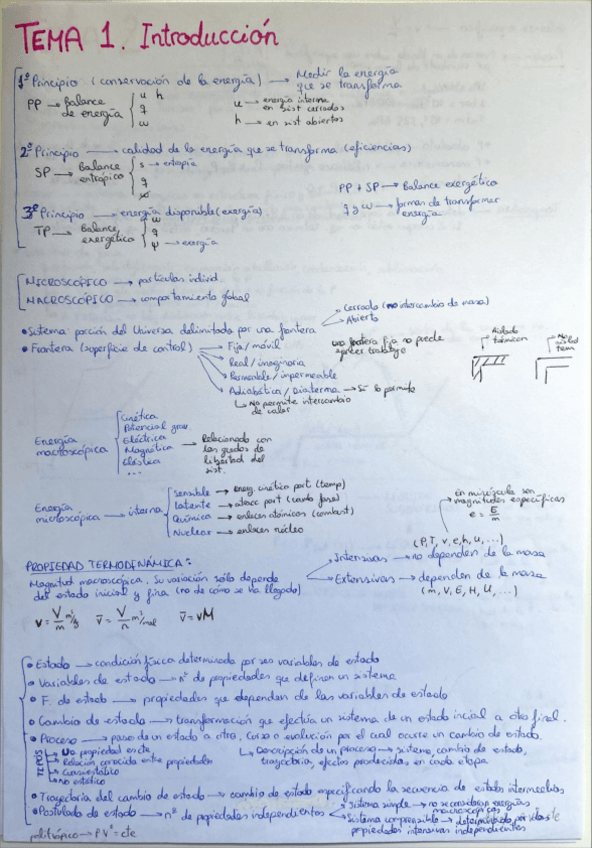 TEMA 1. Introducción
1º Principio (conservación de la energía) → Medir la energía
que se transforma
PP → Balance de energía { u h
q
w
u → energía interna
en sist cerrados
h → en sist abiertos
2º Principio → calidad de la energía que se transforma (eficiencias)
SP → Balance entrópico { s → entropía
q
PP + SP → Balance exergético
q y w → formas de transformar
energía
3º Principio → energía disponible (exergía)
TP → Balance exergético { w
q
ψ → exergía
MICROSCÓPICO → partículas individ.
MACROSCÓPICO → comportamiento global
• Sistema porción del Universo delimitada por una frontera
Cerrado (no intercambio de masa)
Abierto
• Frontera (superficie de control) → Fija / móvil
Real / imaginaria
Permeable / impermeable
Adiabática / Diaterma → Sí lo permite
↳ No permite intercambio
de calor
una frontera fija no puede
ejercer trabajo
Aislado
térmicam
No
aislad
term
Energía
macroscópica { Cinética
Potencial grav.
Eléctrica
Magnética
Elástica
...
→ Relacionado con
los grados de
libertad del
sist.
Energía
microscópica → interna { Sensible → energ. cinética part (temp)
Latente → atracc part (camb fase)
Química → enlaces atómicos (combust)
Nuclear → enlaces núcleo
en minúscula son
magnitudes específicas
e = E/m
(P, T, v, e, h, u, ...)
PROPIEDAD TERMODINÁMICA:
Magnitud macroscópica. Su variación sólo depende
del estado inicial y final (no de cómo se ha llegado)
Intensivas → no dependen de la masa
Extensivas → dependen de la masa
(m, V, E, H, U, ...)
v = V/m m³/kg v̄ = V/n m³/mol v̄ = vM
• Estado → condición física determinada por sus variables de estado
• Variables de estado → nº de propiedades que definen un sistema
• F. de estado → propiedades que dependen de las variables de estado
• Cambio de estado → transformación que efectúa un sistema de un estado incial a otro final.
• Proceso → paso de un estado a otro, curso o evolución por el cual ocurre un cambio de estado.
TIPOS
Una propiedad es cte
Relación conocida entre propiedades
Cuasiestático
No estático
↳ Descripción de un proceso → sistema, cambio de estado,
trayectoria, efectos producidos, en cada etapa
• Trayectoria del cambio de estado → cambio de estado especificando la secuencia de estados intermedios
• Postulado de estado → nº de propiedades independientes
Sistema simple → no energías
macroscópicas
Sistema compresible → determinado por
propiedades intensivas independientes
politrópico → P Vⁿ = cte